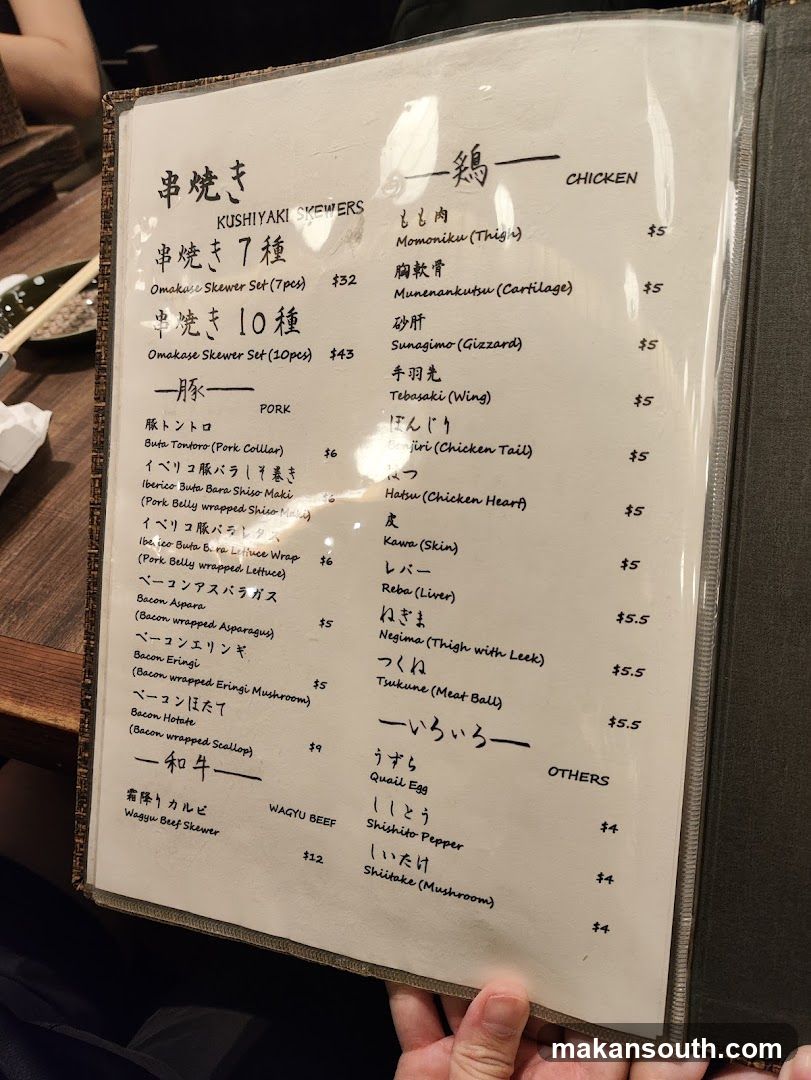 串焼き
KUSHIYAKI SKEWERS
串焼き 7 種
Omakase Skewer Set (7pcs) $32
串焼き 10 種
Omakase Skewer Set (10pcs) $43
豚
PORK
豚トントロ
Buta Tontoro (Pork Colllar) $6
イベリコ豚バラしそ巻き
Iberico Buta Bara Shiso Maki
(Pork Belly wrapped Shiso Maki) $6
イベリコ豚バラレタス
Iberico Buta Bara Lettuce Wrap
(Pork Belly wrapped Lettuce) $6
ベーコンアスパラガス
Bacon Aspara
(Bacon wrapped Asparagus) $5
ベーコンエリンギ
Bacon Eringi
(Bacon wrapped Eringi Mushroom) $5
ベーコンほたて
Bacon Hotate
(Bacon wrapped Scallop) $9
和牛
WAGYU BEEF
霜降りカルビ
Wagyu Beef Skewer
$12
鶏
CHICKEN
もも肉
Momoniku (Thigh) $5
胸軟骨
Munenankutsu (Cartilage) $5
砂肝
Sunagimo (Gizzard) $5
手羽先
Tebasaki (Wing) $5
ぼんじり
Bonjiri (Chicken Tail) $5
はつ
Hatsu (Chicken Hearf) $5
皮
Kawa (Skin) $5
レバー
Reba (Liver) $5.5
ねぎま
Negima (Thigh with Leek) $5.5
つくね
Tsukune (Meat Ball) $5.5
いろいろ
OTHERS
うずら
Quail Egg $4
ししとう
Shishito Pepper $4
しいたけ
Shiitake (Mushroom) $4
makansouth.com